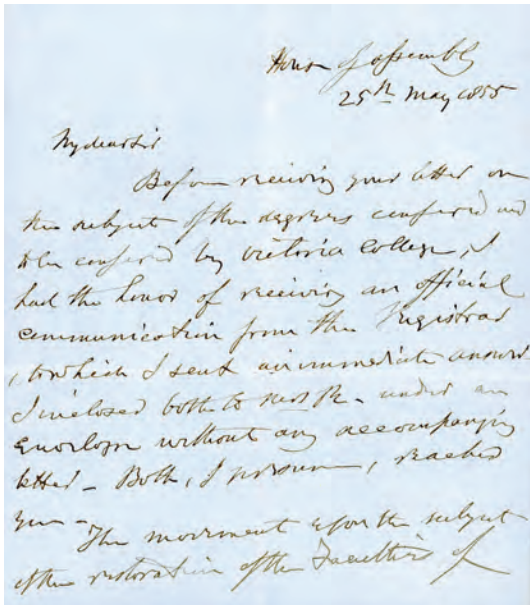 House of Assembly
25th May 1855
My dear Sir
Before receiving your letter on
the subject of the degrees conferred and
to be conferred by Victoria College, I
had the honor of receiving an official
communication from the Registrar
, to which I sent an immediate answer.
I inclosed both to under an
Envelope without any accompanying
letter - Both, I presume, reached
you -
The movement upon the subject
of the restoration of the Faculties of